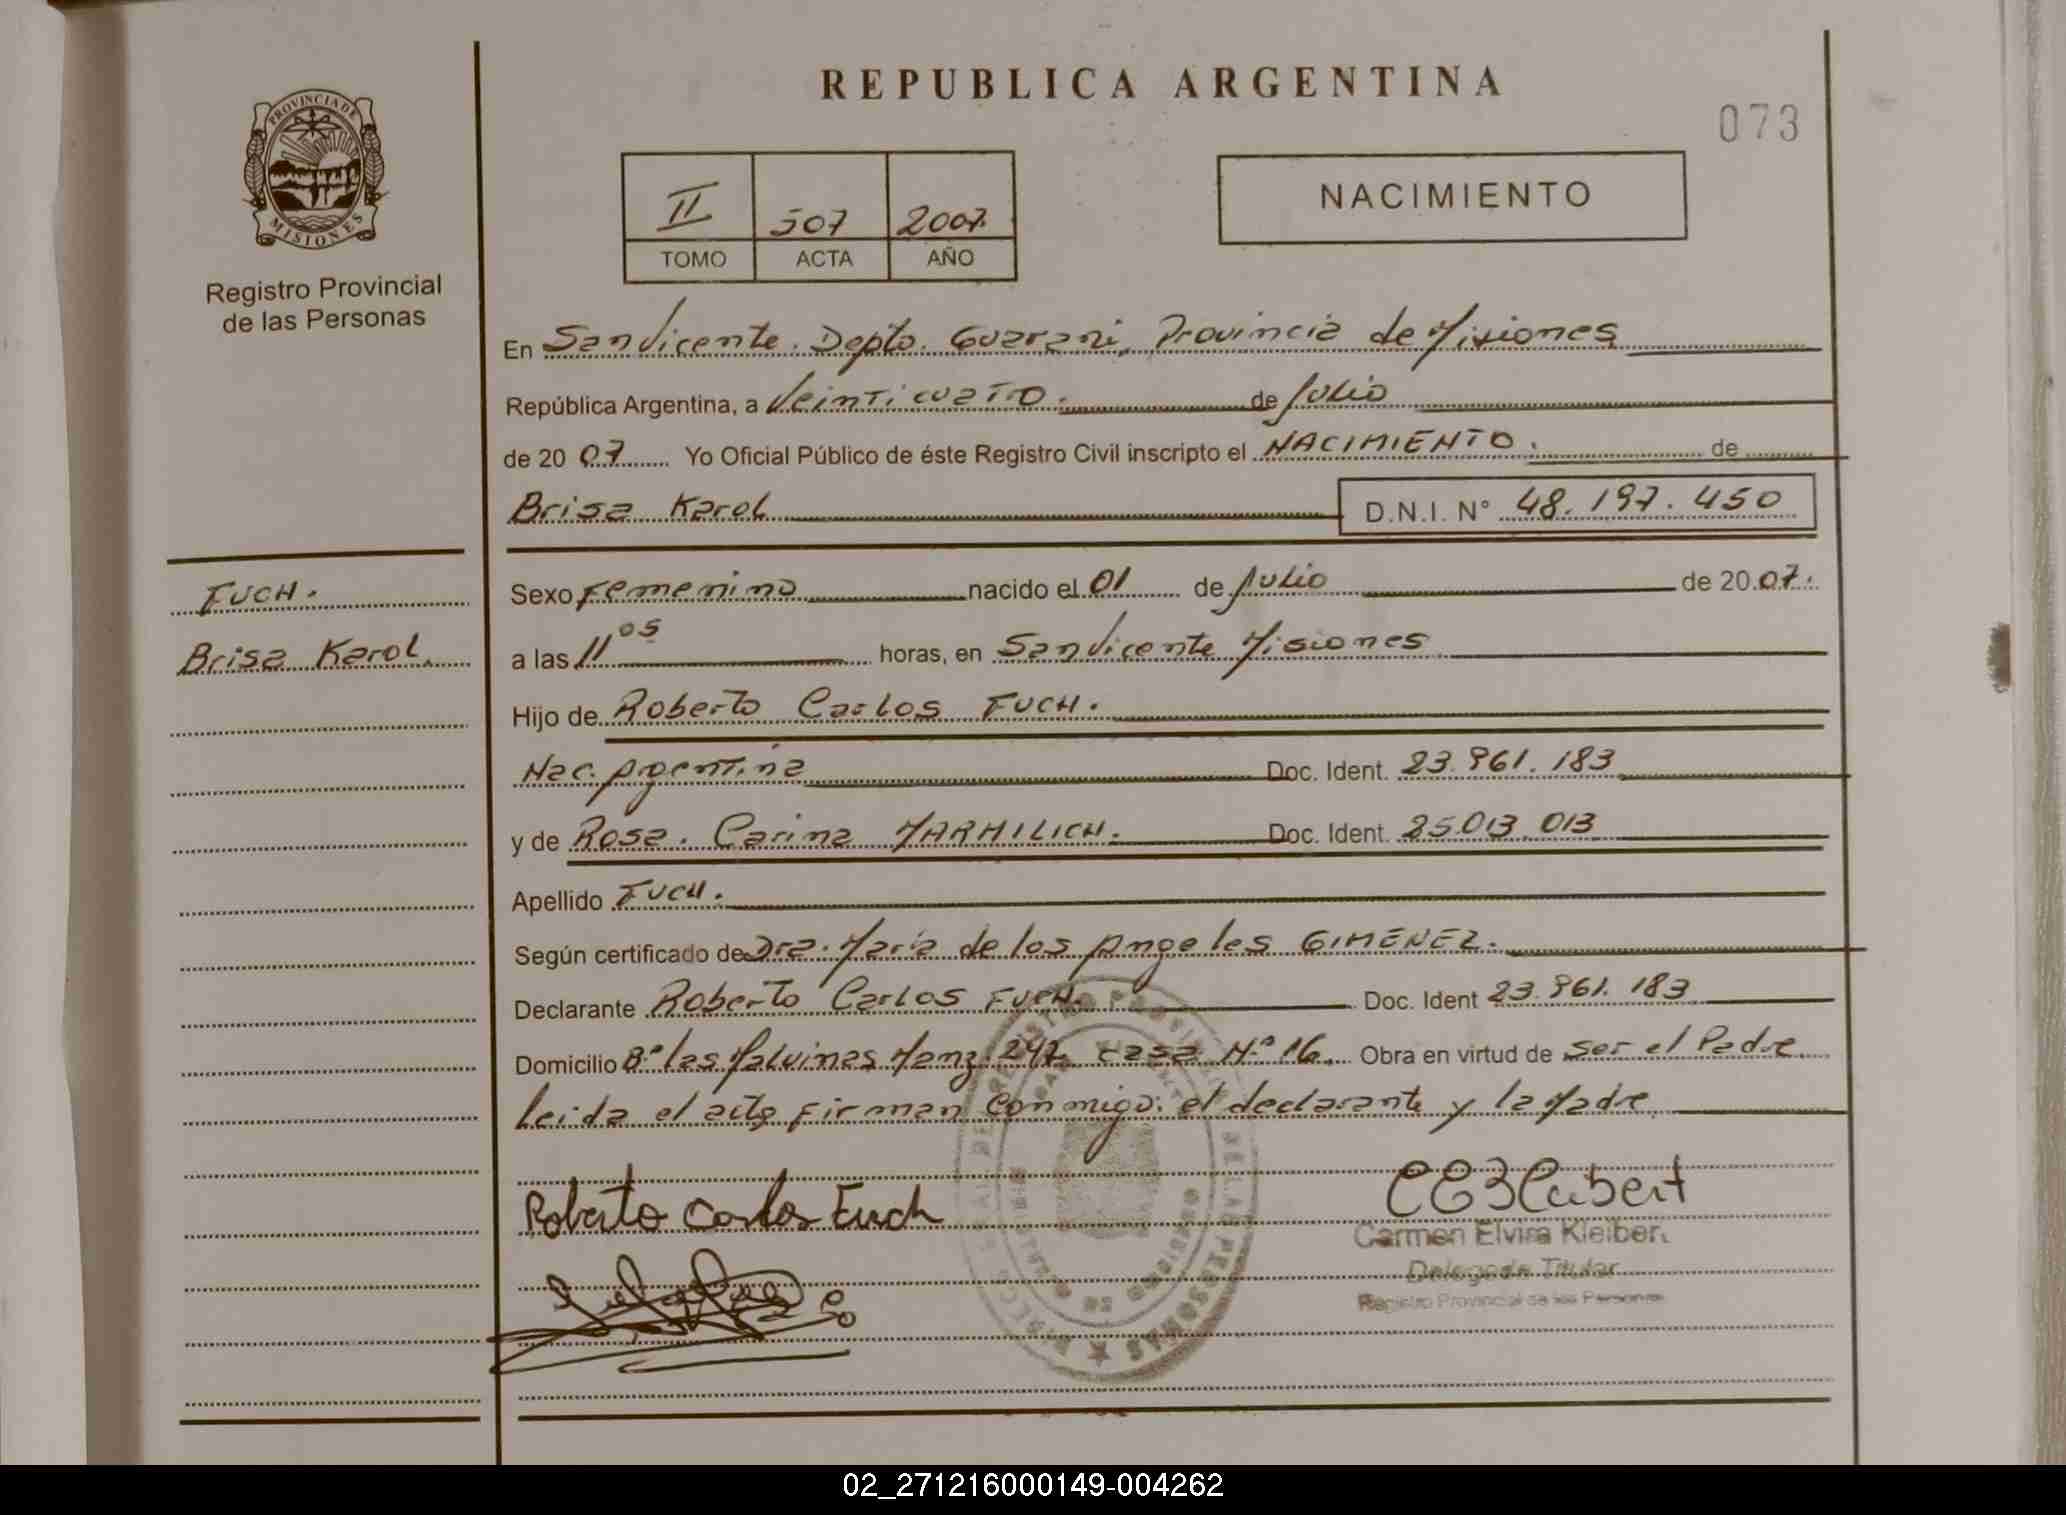 REPUBLICA ARGENTINA
073
PROVINCIA DE
MISIONES
Registro Provincial
de las Personas
II 507 2007
TOMO ACTA AÑO
NACIMIENTO
En San Vicente. Depto. Guarani, Provincia de Misiones
República Argentina, a Veinticuatro. de Julio
de 20 07 Yo Oficial Público de éste Registro Civil inscripto el NACIMIENTO. de
Brisa Karol D.N.I. N° 48.197.450
FUCH.
Brisa Karol.
Sexo Femenino nacido el 01 de Julio de 20 07.
a las 11 05 horas, en San Vicente Misiones
Hijo de Roberto Carlos FUCH.
Nac. Argentina Doc. Ident. 23.961.183
y de Rosa. Carina MARMILICH. Doc. Ident. 25.013.013
Apellido FUCH.
Según certificado de Dra. María de los Angeles GIMÉNEZ.
Declarante Roberto Carlos FUCH. Doc. Ident 23.961.183
Domicilio B° las Malvinas Manz. 247 casa N° 16. Obra en virtud de ser el Padre
leida el acta firman conmigo: el declarante y la Madre
Roberto Carlos Fuch
Carmen Elvira Kleiber
Delegada Titular
Registro Provincial de las Personas
02_271216000149-004262